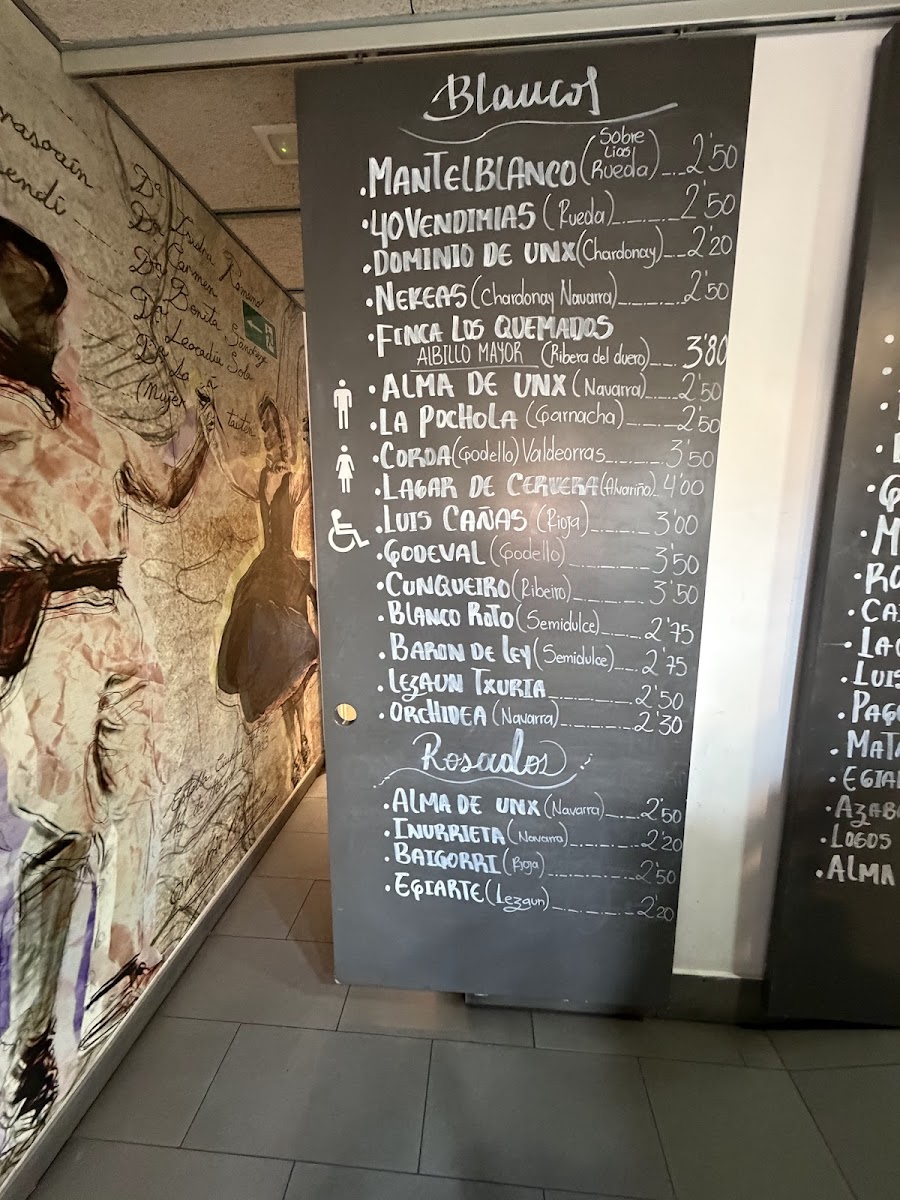 Blancos
.MANTELBLANCO (Sobre Lias Rueda) 2'50
.40 VENDIMIAS (Rueda) 2'50
.DOMINIO DE UNX (Chardonay) 2'20
.NEKEAS (Chardonay Navarra) 2'50
.FINCA LOS QUEMADOS
AlBILLO MAYOR (Ribera del duero) 3'80
.ALMA DE UNX (Navarra) 2'50
.LA POCHOLA (Garnacha) 2'50
.CORDA (Godello) Valdeorras 3'50
.LAGAR DE CERVERA (Alvariño) 4'00
.LUIS CAÑAS (Rioja) 3'00
.GODEVAL (Godello) 3'50
.CUNQUEIRO (Ribeiro) 3'50
.BLANCO ROTO (Semidulce) 2'75
.BARON DE LEY (Semidulce) 2'75
.LEZAUN TXURIA 2'50
.ORCHIDEA (Navarra) 2'30
Rosados
.ALMA DE UNX (Navarra) 2'50
.INURRIETA (Navarra) 2'20
.BAIGORRI (Rioja) 2'50
.EGIARTE (Lezaun) 2'20
Dª Carmen
Dª Benita Sanchez
Dª Leocadia Sola
(Mujer
LUIS
MATA
EGIA
AZAB
LOGOS
.ALMA